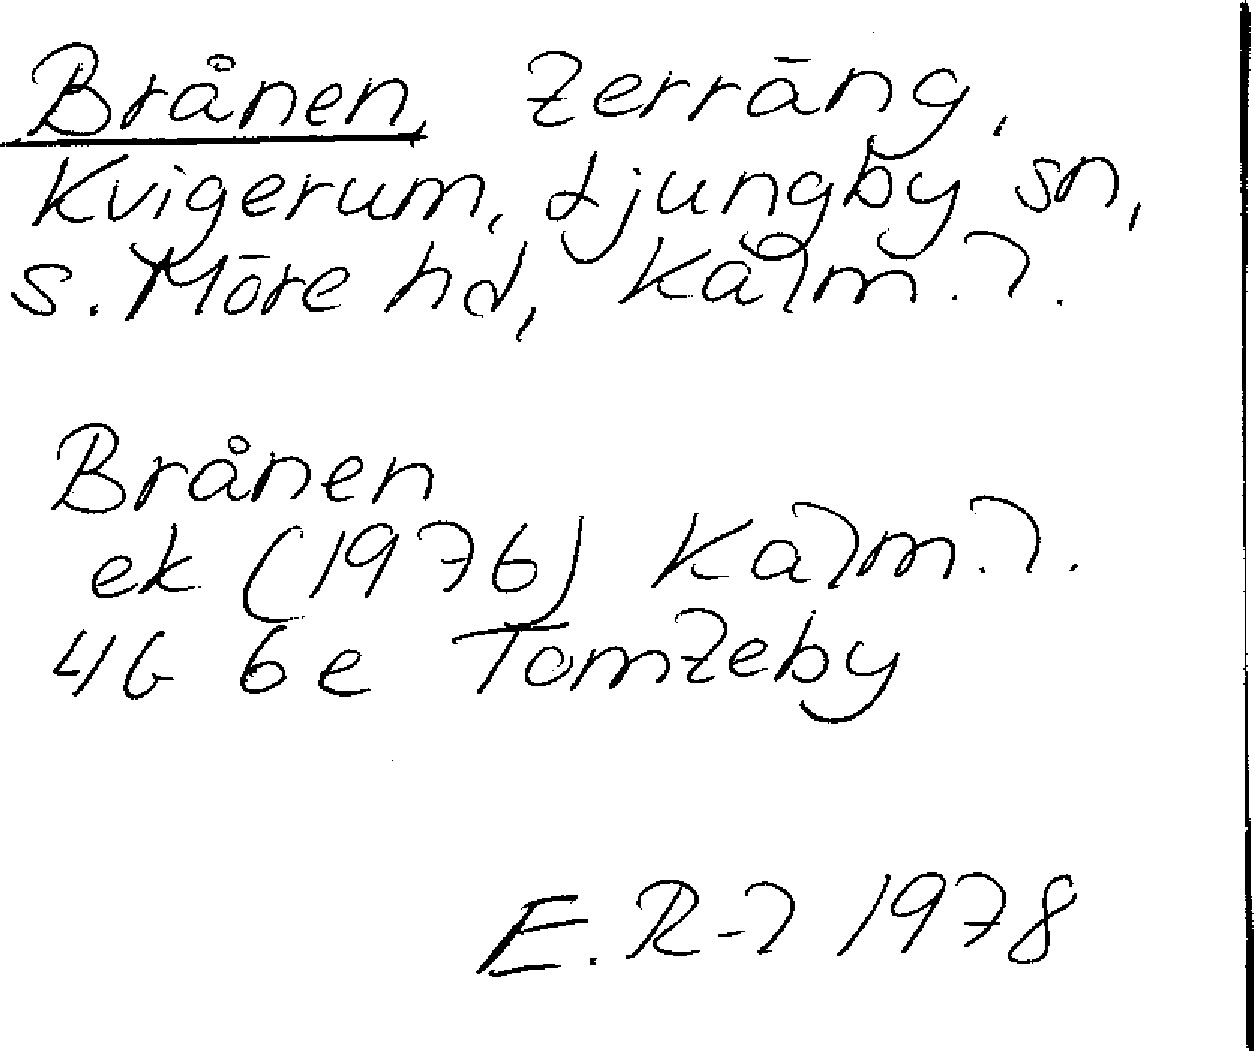 Brånen, terräng,
Kvigerum, Ljungby sn,
S. Möre hd, Kalm. l.
Brånen
ek (1976) Kalm. l.
4G 6e Tomteby
E. R-l 1978